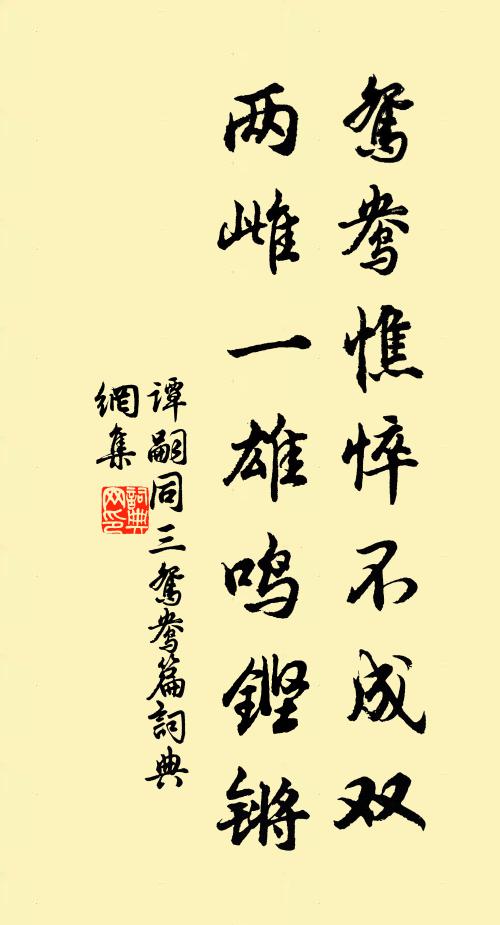 鸳鸯憔悴不成双
两雌一雄鸣铿锵
谭嗣同三鸳鸯篇詞典
網集
詞典
网印